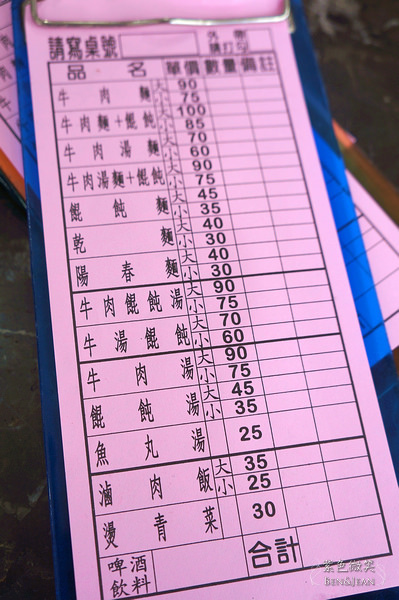 請寫桌號 外帶請打勾
品名 單價 數量 備註
牛肉麵 大 90
小 75
牛肉麵+餛飩 大 100
小 85
牛肉湯麵 大 70
小 60
牛肉湯麵+餛飩 大 90
小 75
餛飩麵 大 45
小 35
乾麵 大 40
小 30
陽春麵 大 40
小 30
牛肉餛飩湯 大 90
小 75
牛湯餛飩 大 70
小 60
牛肉湯 大 90
小 75
餛飩湯 大 45
小 35
魚丸湯 25
滷肉飯 大 35
小 25
燙青菜 30
啤酒飲料 合計
紫色微笑
BEN&JEAN